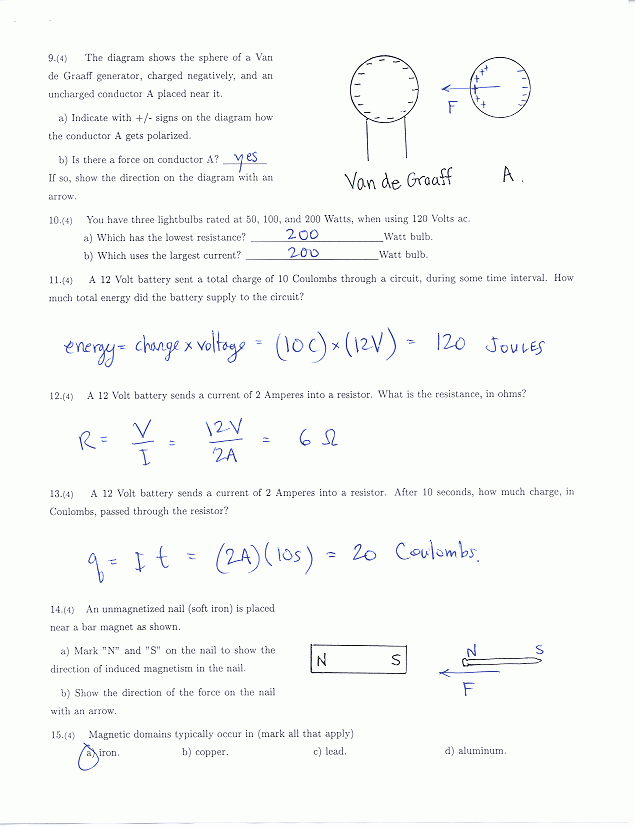 9.(4) The diagram shows the sphere of a Van
de Graaff generator, charged negatively, and an
uncharged conductor A placed near it.
a) Indicate with +/- signs on the diagram how
the conductor A gets polarized.
b) Is there a force on conductor A? yes
If so, show the direction on the diagram with an
arrow.
F
Van de Graaff A.
10.(4) You have three lightbulbs rated at 50, 100, and 200 Watts, when using 120 Volts ac.
a) Which has the lowest resistance? 200 Watt bulb.
b) Which uses the largest current? 200 Watt bulb.
11.(4) A 12 Volt battery sent a total charge of 10 Coulombs through a circuit, during some time interval. How
much total energy did the battery supply to the circuit?
energy = charge × voltage = (10 C) × (12V) = 120 Joules
12.(4) A 12 Volt battery sends a current of 2 Amperes into a resistor. What is the resistance, in ohms?
R = V/I = 12V/2A = 6 Ω
13.(4) A 12 Volt battery sends a current of 2 Amperes into a resistor. After 10 seconds, how much charge, in
Coulombs, passed through the resistor?
q = I t = (2A)(10s) = 20 Coulombs.
14.(4) An unmagnetized nail (soft iron) is placed
near a bar magnet as shown.
a) Mark "N" and "S" on the nail to show the
direction of induced magnetism in the nail.
b) Show the direction of the force on the nail
with an arrow.
N S N S
F
15.(4) Magnetic domains typically occur in (mark all that apply)
a) iron. b) copper. c) lead. d) aluminum.